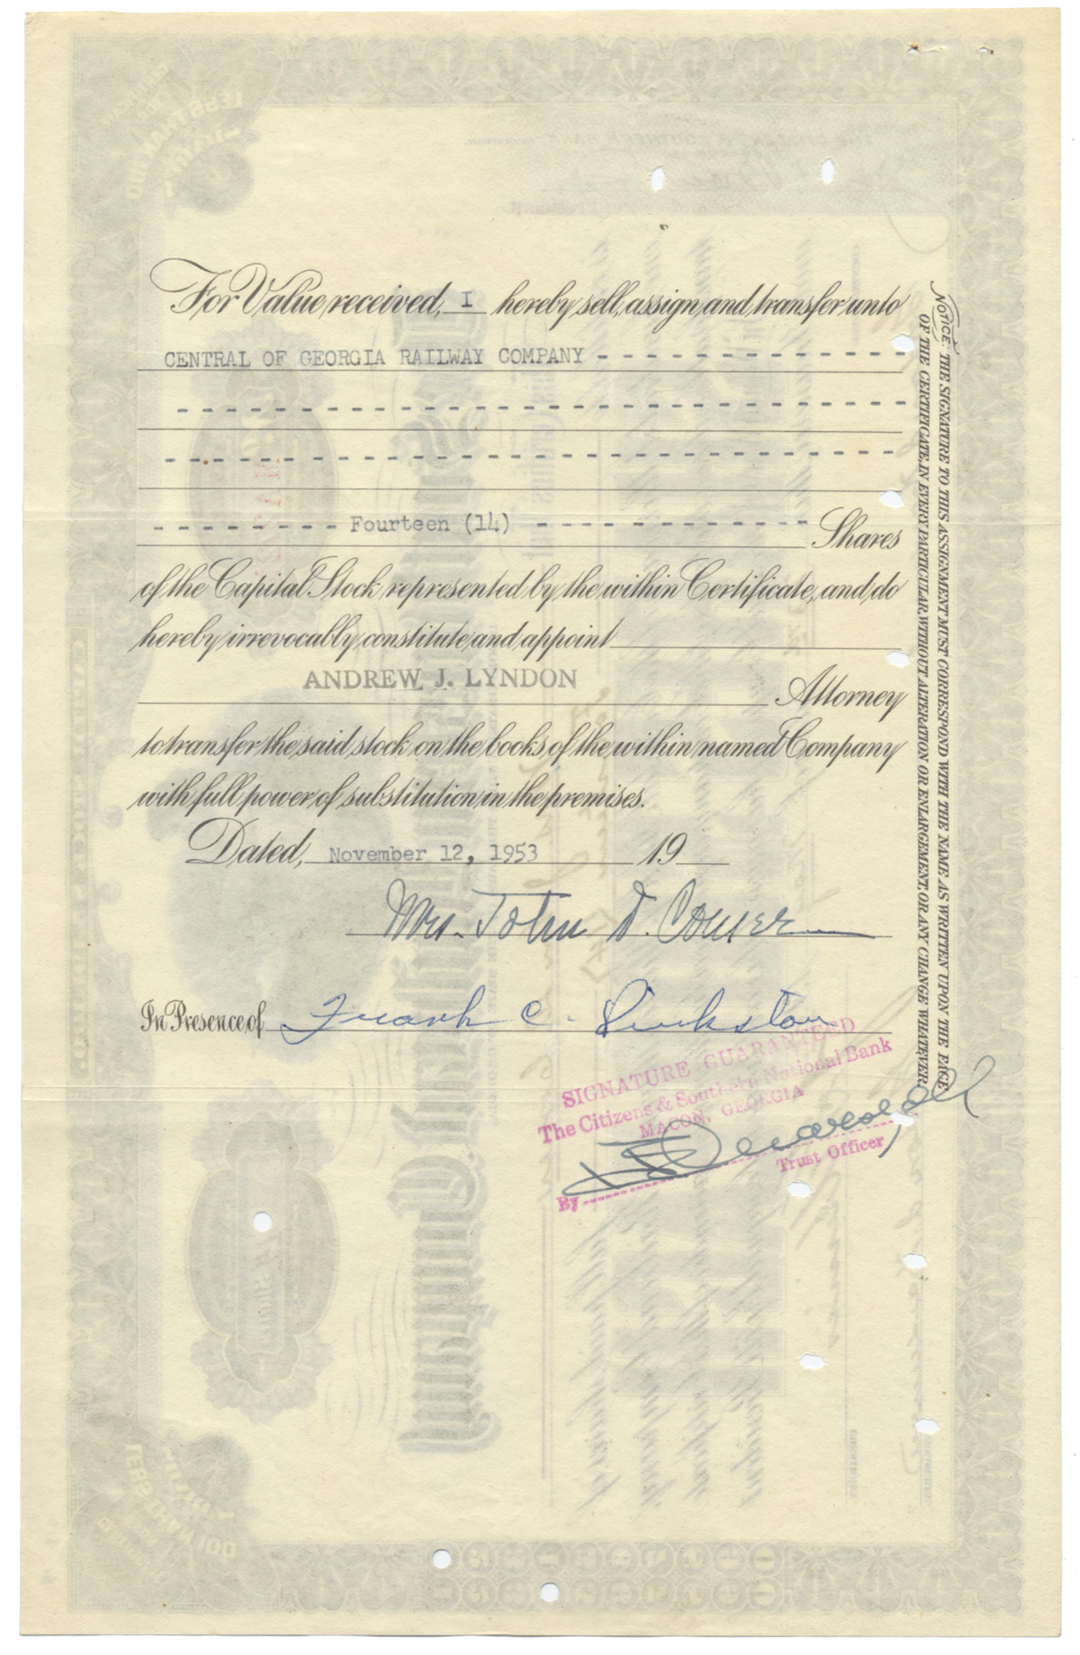 For Value received, I hereby sell, assign and transfer unto
CENTRAL OF GEORGIA RAILWAY COMPANY - - - - - - - - - - - - - -
- - - - - - - - - - - - - - - - - - - - - - - - - - - - - - -
- - - - - - - - - - - - - - - - - - - - - - - - - - - - - - -
- - - - - - - - Fourteen (14) - - - - - - - - - - - - Shares
of the Capital Stock represented by the within Certificate, and do
hereby irrevocably constitute and appoint
ANDREW J. LYNDON Attorney
to transfer the said stock on the books of the within named Company
with full power of substitution in the premises.
Dated, November 12, 1953 19
Mrs. John D. Comer
In Presence of Frank C. Pinkston
SIGNATURE GUARANTEED
The Citizens & Southern National Bank
MACON, GEORGIA
By
Trust Officer
NOTICE: THE SIGNATURE TO THIS ASSIGNMENT MUST CORRESPOND WITH THE NAME AS WRITTEN UPON THE FACE
OF THE CERTIFICATE, IN EVERY PARTICULAR, WITHOUT ALTERATION OR ENLARGEMENT, OR ANY CHANGE WHATEVER.